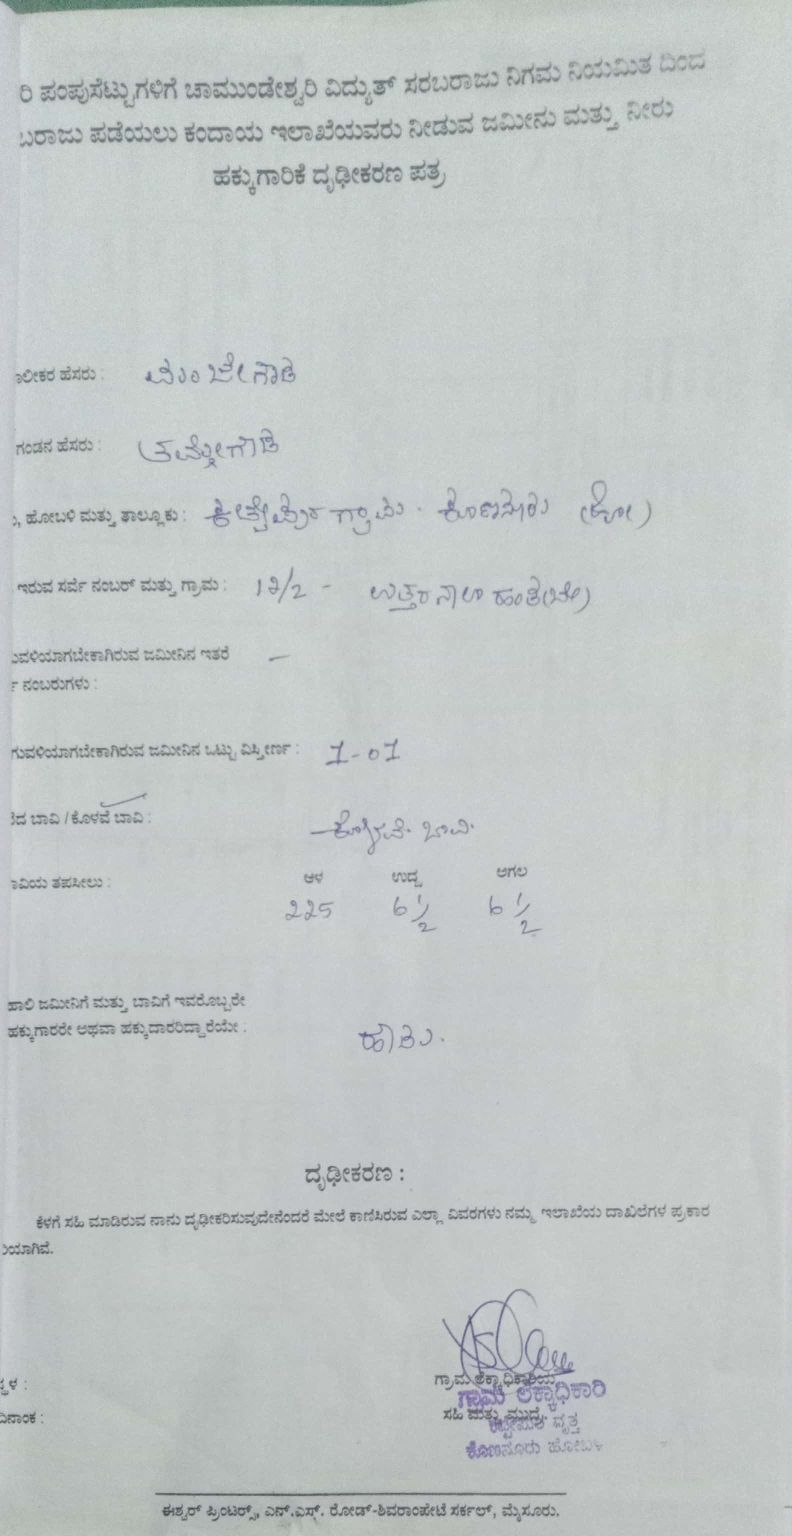 ರಿ ಪಂಪುಸೆಟ್ಟುಗಳಿಗೆ ಚಾಮುಂಡೇಶ್ವರಿ ವಿದ್ಯುತ್ ಸರಬರಾಜು ನಿಗಮ ನಿಯಮಿತ ದಿಂದ
ಬರಾಜು ಪಡೆಯಲು ಕಂದಾಯ ಇಲಾಖೆಯವರು ನೀಡುವ ಜಮೀನು ಮತ್ತು ನೀರು
ಹಕ್ಕುಗಾರಿಕೆ ದೃಢೀಕರಣ ಪತ್ರ
ಾಲೀಕರ ಹೆಸರು : ಮಂಜೇಗೌಡ
ಗಂಡನ ಹೆಸರು : ತಮ್ಮೇಗೌಡ
, ಹೋಬಳಿ ಮತ್ತು ತಾಲ್ಲೂಕು : ಗ್ರಾಮ. ಕೊಣನೂರು (ಹೋ)
ಇರುವ ಸರ್ವೆ ನಂಬರ್ ಮತ್ತು ಗ್ರಾಮ : 12/2 -
ುವಳಿಯಾಗಬೇಕಾಗಿರುವ ಜಮೀನಿನ ಇತರೆ —
ನಂಬರುಗಳು :
ಗುವಳಿಯಾಗಬೇಕಾಗಿರುವ ಜಮೀನಿನ ಒಟ್ಟು ವಿಸ್ತೀರ್ಣ : 1-01
ದ ಬಾವಿ / ಕೊಳವೆ ಬಾವಿ : ಕೊಳವೆ ಬಾವಿ.
ಾವಿಯ ತಪಸೀಲು : ಆಳ ಉದ್ದ ಅಗಲ
225 6 1/2 6 1/2
ಹಾಲಿ ಜಮೀನಿಗೆ ಮತ್ತು ಬಾವಿಗೆ ಇವರೊಬ್ಬರೇ
ಹಕ್ಕುಗಾರರೇ ಅಥವಾ ಹಕ್ಕುದಾರರಿದ್ದಾರೆಯೇ : ಹೌದು.
ದೃಢೀಕರಣ :
ಕೆಳಗೆ ಸಹಿ ಮಾಡಿರುವ ನಾನು ದೃಢೀಕರಿಸುವುದೇನೆಂದರೆ ಮೇಲೆ ಕಾಣಿಸಿರುವ ಎಲ್ಲಾ ವಿವರಗಳು ನಮ್ಮ ಇಲಾಖೆಯ ದಾಖಲೆಗಳ ಪ್ರಕಾರ
ಿಯಾಗಿವೆ.
್ಥಳ : ಗ್ರಾಮ ಲೆಕ್ಕಾಧಿಕಾರಿಯ
ಗ್ರಾಮ ಲೆಕ್ಕಾಧಿಕಾರಿ
ದಿನಾಂಕ : ಸಹಿ ಮತ್ತು ಮುದ್ರೆ
ವೃತ್ತ
ಕೊಣನೂರು ಹೋಬಳಿ
ಈಶ್ವರ್ ಪ್ರಿಂಟರ್ಸ್, ಎನ್.ಎಸ್. ರೋಡ್-ಶಿವರಾಂಪೇಟೆ ಸರ್ಕಲ್, ಮೈಸೂರು.